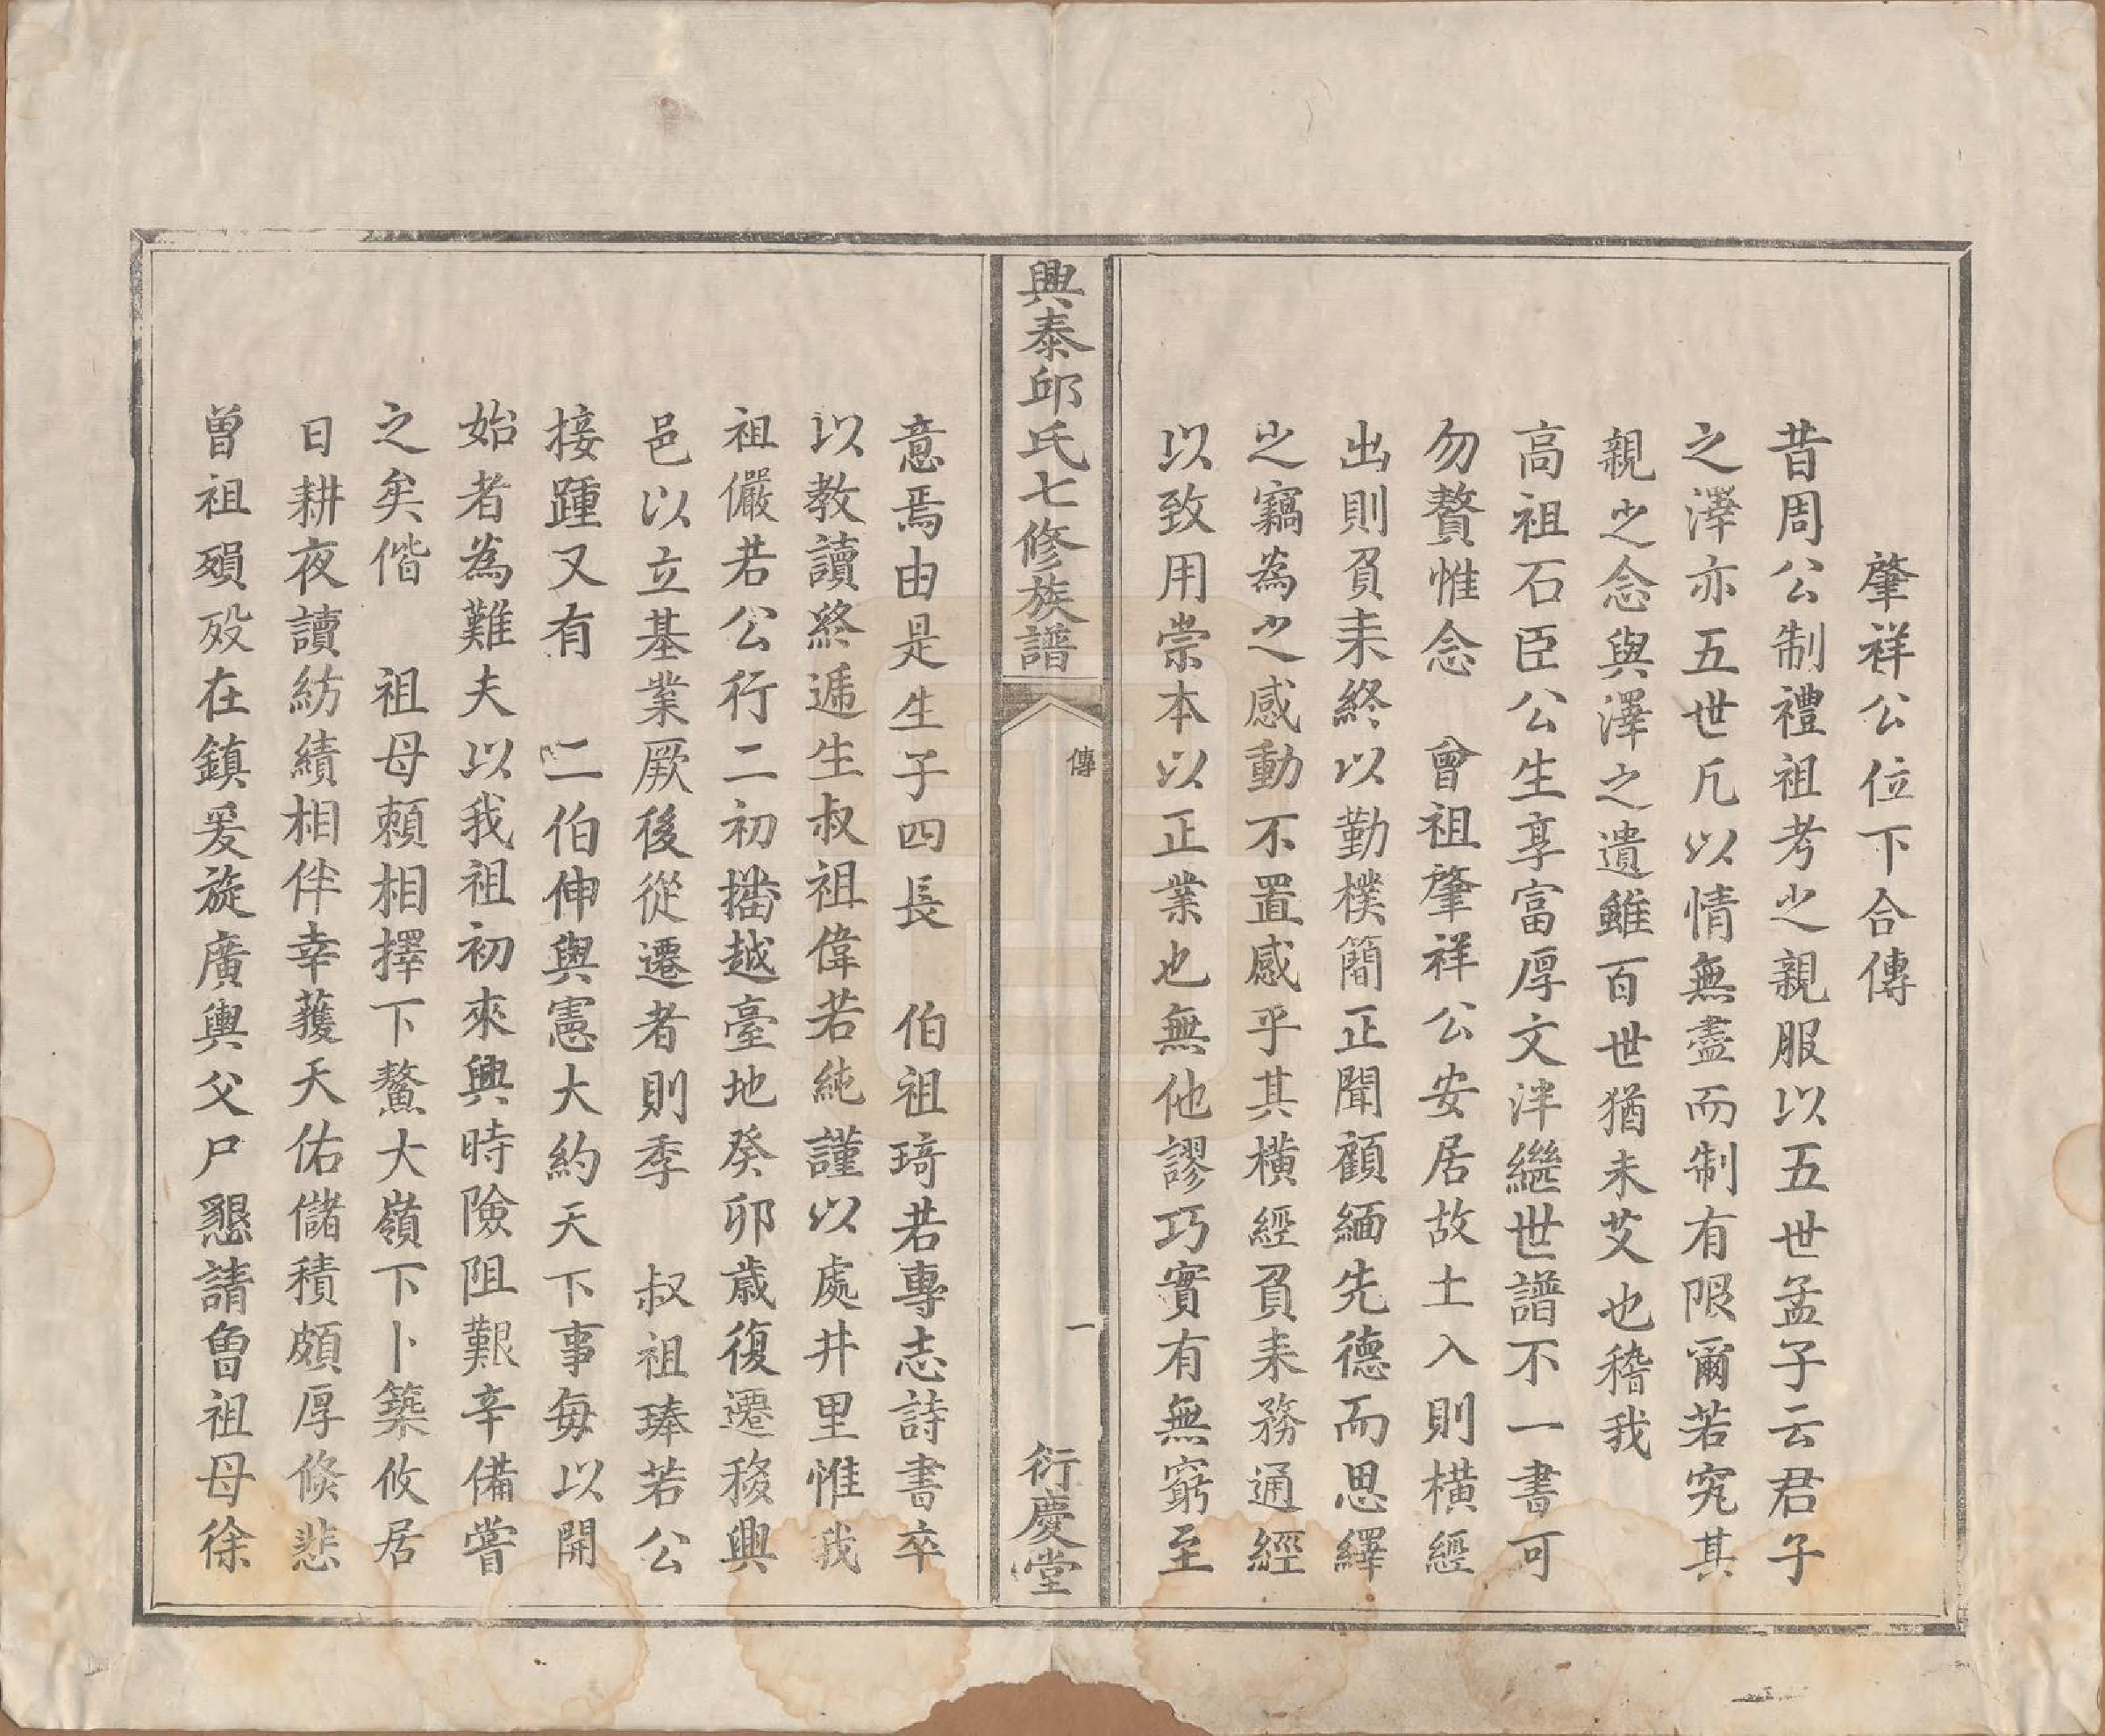 肇祥公位下合傳
昔周公制禮祖考之親服以五世孟子云君子
之澤亦五世凡以情無盡而制有限爾若究其
親之念與澤之遺雖百世猶未艾也稽我
高祖石臣公生享富厚文泮繼世譜不一書可
勿贅惟念 曾祖肇祥公安居故土入則橫經
出則負耒終以勤樸簡正聞顧緬先德而思繹
之竊為之感動不置感乎其橫經負耒務通經
以致用崇本以正業也無他謬巧實有無窮至
興泰邱氏七修族譜
傳
一
衍慶堂
意焉由是生子四長 伯祖琦若專志詩書卒
以教讀終遞生叔祖偉若純謹以處井里惟我
祖儼若公行二初播越臺地癸卯歲復遷移興
邑以立基業厥後從遷者則季 叔祖琫若公
接踵又有 二伯伸與憲大約天下事每以開
始者為難夫以我祖初來興時險阻艱辛備嘗
之矣偕 祖母賴相擇下鰲大嶺下卜築攸居
日耕夜讀紡績相伴幸獲天佑儲積頗厚倏悲
曾祖殞歿在鎮爰旋廣輿父尸懇請曾祖母徐